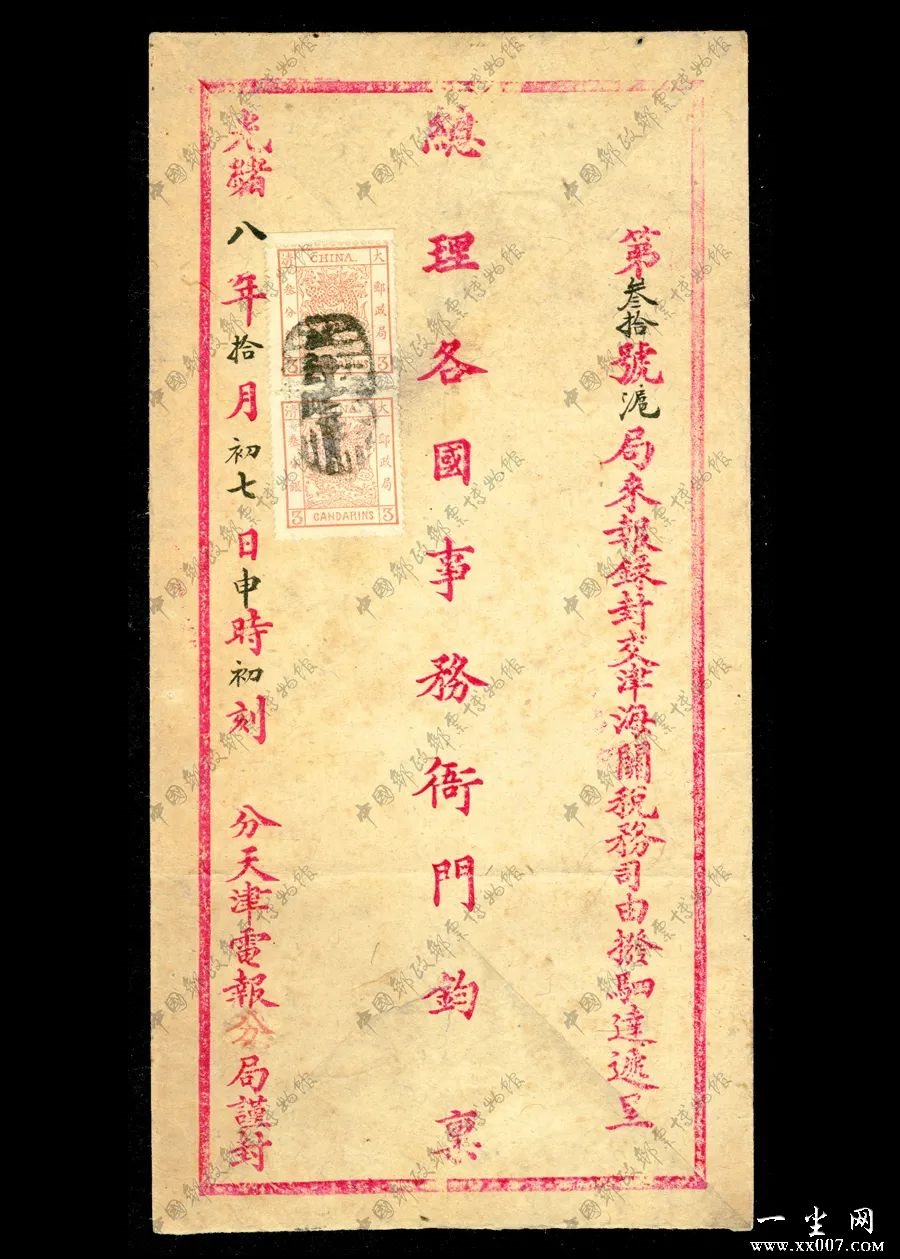 第叁拾號滬局來報錄封交津海關稅務司由撥駟達遞呈
總理各國事務衙門鈞稟
大清郵政局
CHINA.
叁分銀
3 CANDARINS 3
大清郵政局
CHINA.
叁分銀
3 CANDARINS 3
光緒八年拾月初七日申時初刻
分天津電報分局謹封
中國郵政郵票博物館
一尘网
www.xx007.com